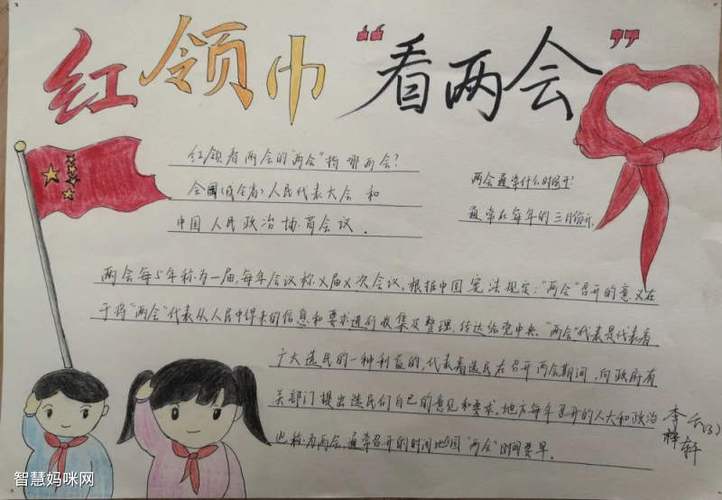 红领巾“看两会”
红领看两会的“两会”指哪两会?
全国(或全省)人民代表大会 和
中国人民政治协商会议.
两会通常什么时候开?
通常在每年的三月份开.
两会每5年称为一届,每年会议称X届X次会议.根据中国宪法规定:“两会”召开的意义在
于将“两会”代表从人民中得来的信息和要求进行收集及整理,传达给党中央.“两会”代表是代表着
广大选民的一种利益的,代表着选民在召开两会期间,向政府有
关部门提出选民们自己的意见和要求.地方每年召开的人大和政治
也称为两会,通常召开的时间比全国“两会”时间要早.
李梓轩
智慧妈咪网